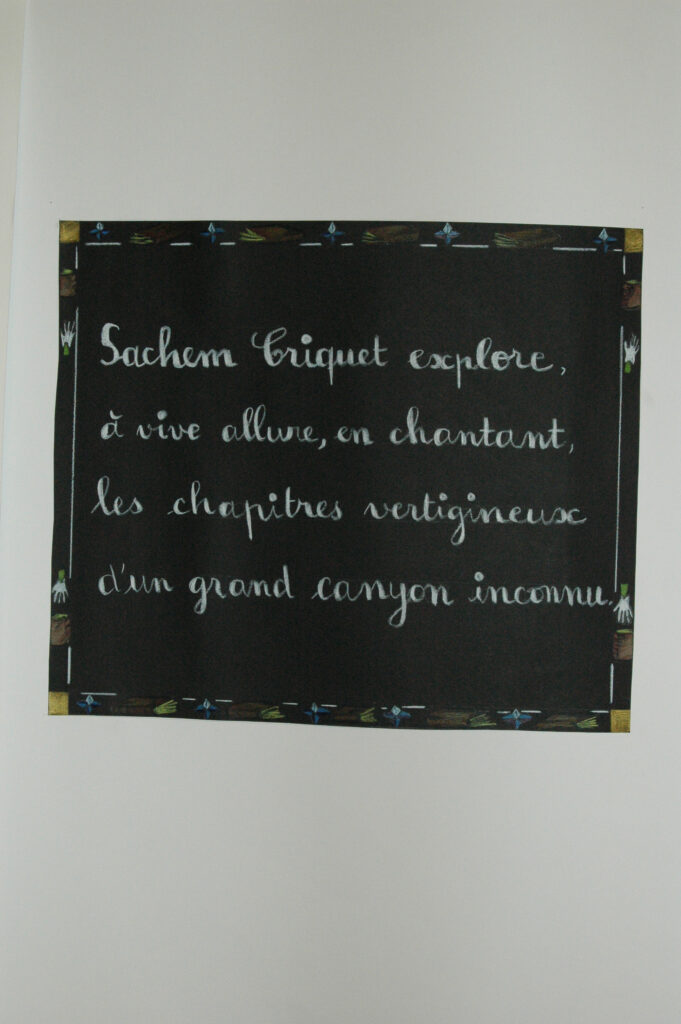 Sachem Criquet explore,
à vive allure, en chantant,
les chapitres vertigineux
d'un grand canyon inconnu.